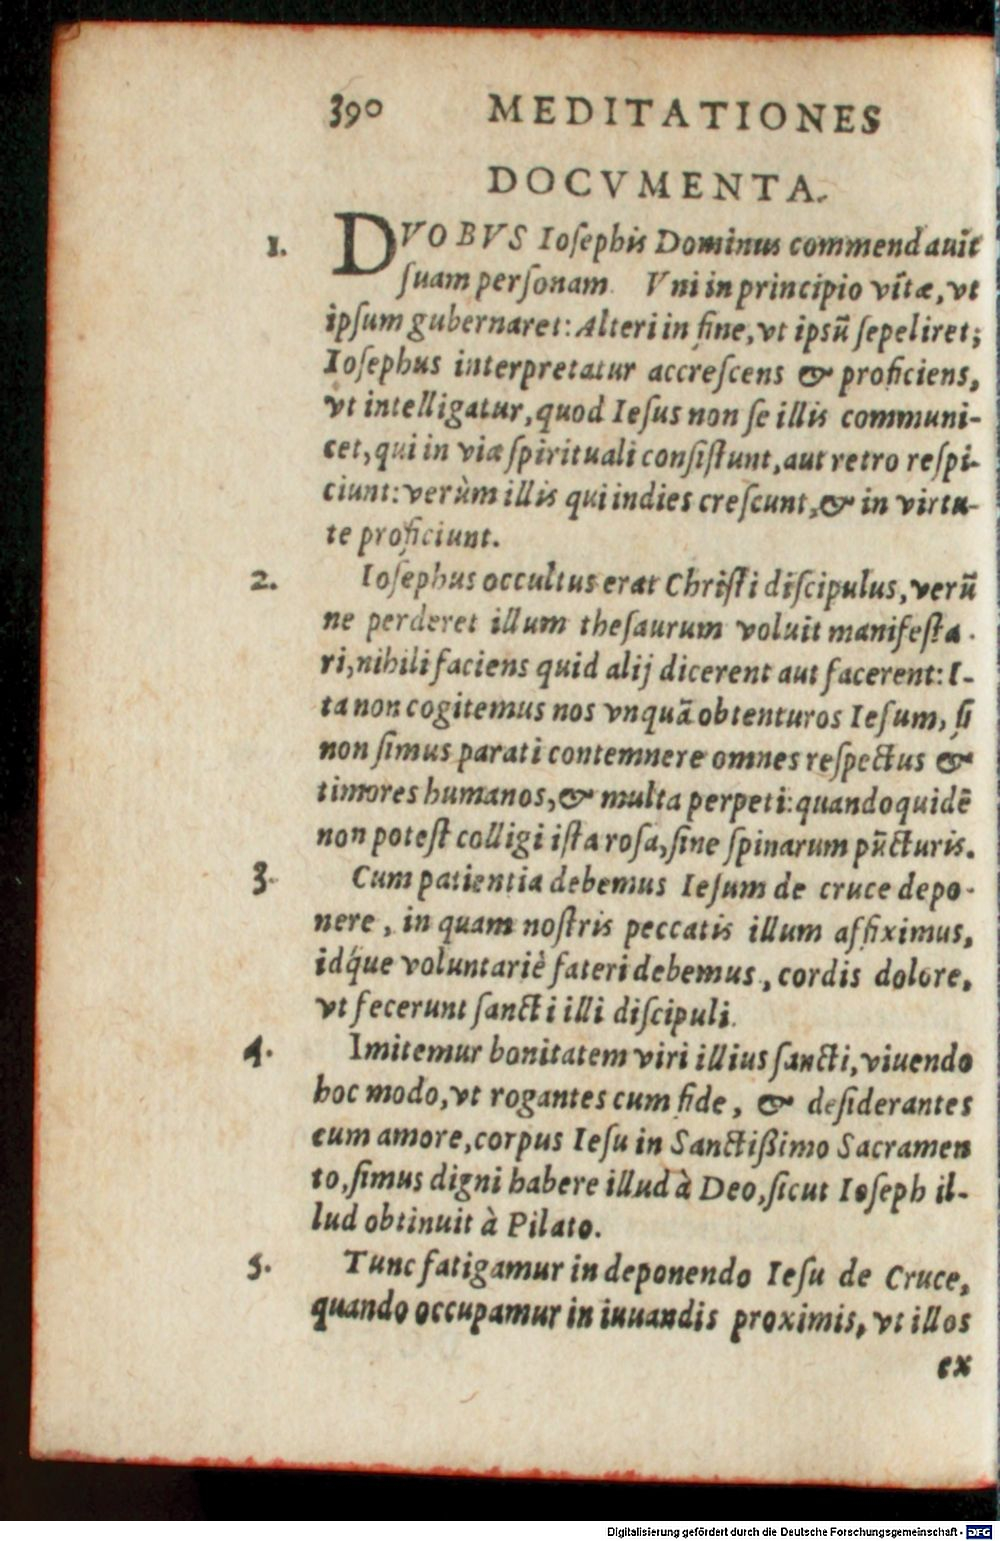 390 MEDITATIONES
DOCVMENTA.
1. DVOBVS Ioſephis Dominus commendauit
ſuam perſonam. Vni in principio vitæ, vt
ipſum gubernaret: Alteri in fine, vt ipsũ ſepeliret;
Ioſephus interpretatur accreſcens & proficiens,
vt intelligatur, quod Ieſus non ſe illis communi-
cet, qui in via ſpirituali conſiſtunt, aut retro reſpi-
ciunt: verùm illis qui indies creſcunt, & in virtu-
te proficiunt.
2. Ioſephus occultus erat Chriſti diſcipulus, verũ
ne perderet illum theſaurum voluit manifeſta-
ri, nihili faciens quid alij dicerent aut facerent: I-
ta non cogitemus nos vnquã obtenturos Ieſum, ſi
non ſimus parati contemnere omnes reſpectus &
timores humanos, & multa perpeti: quandoquidẽ
non poteſt colligi iſta roſa, ſine ſpinarum pũcturis.
3. Cum patientia debemus Ieſum de cruce depo-
nere, in quam noſtris peccatis illum affiximus,
idq́ue voluntariè fateri debemus, cordis dolore,
vt fecerunt ſancti illi diſcipuli.
4. Imitemur bonitatem viri illius ſancti, viuendo
hoc modo, vt rogantes cum fide, & deſiderantes
cum amore, corpus Ieſu in Sanctißimo Sacramen
to, ſimus digni habere illud à Deo, ſicut Ioſeph il-
lud obtinuit à Pilato.
5. Tunc fatigamur in deponendo Ieſu de Cruce,
quando occupamur in iuuandis proximis, vt illos
ex
Digitalisierung gefördert durch die Deutsche Forschungsgemeinschaft - DFG